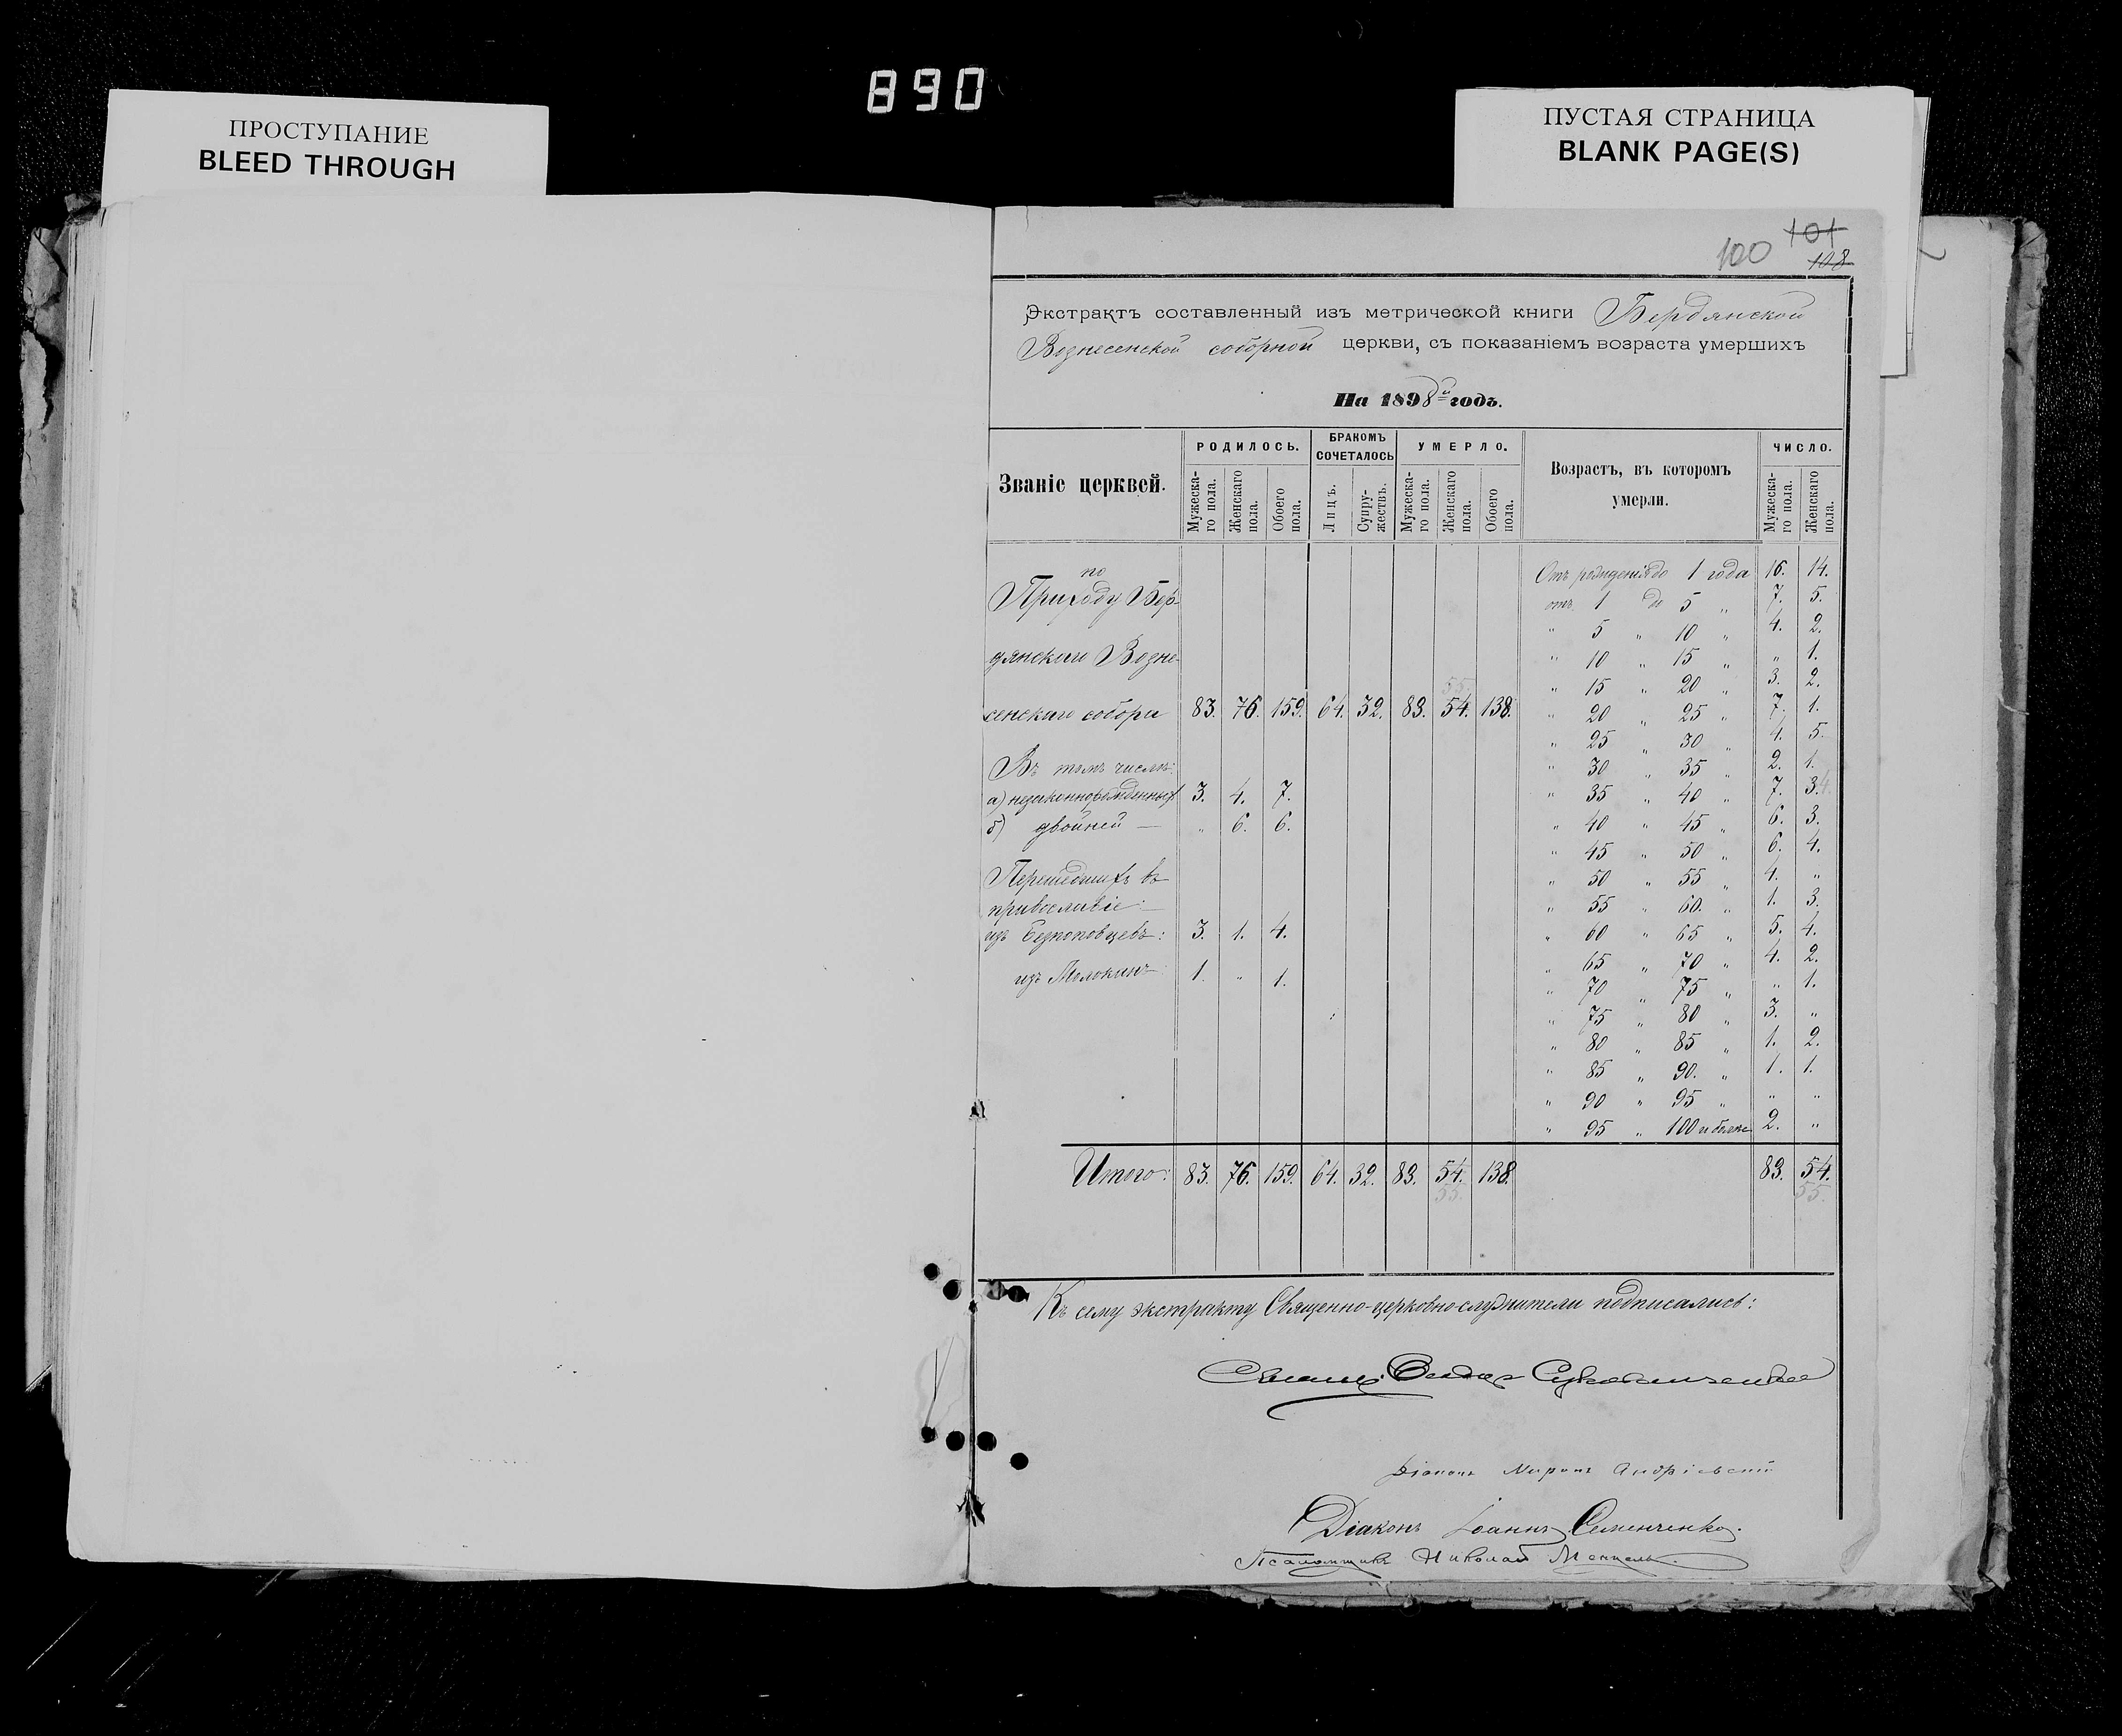 890
ПРОСТУПАНИЕ
BLEED THROUGH
ПУСТАЯ СТРАНИЦА
BLANK PAGE(S)
100 101
108
Экстрактъ составленный изъ метрической книги Бердянской
Вознесенской соборной церкви, съ показаніемъ возраста умершихъ
На 1898й годъ.
Званіе церквей.
РОДИЛОСЬ.
БРАКОМЪ СОЧЕТАЛОСЬ
УМЕРЛО.
Возрастъ, въ котором умерли.
ЧИСЛО.
Мужеска-го пола. Женскаго пола. Обоего пола. Лицъ. Супру-жествъ. Мужеска-го пола. Женскаго пола. Обоего пола. Мужеска-го пола. Женскаго пола.
по
Приходу Бер-
дянскаго Возне-
55.
сенскаго собора 83. 76. 159. 64. 32. 83. 54. 138.
Въ томъ числѣ:
а) незаконнорожденныхъ 3. 4. 7.
б) двойней — " 6. 6.
Перешедшихъ въ
православіе: —
изъ Безпоповцевъ: 3. 1. 4.
изъ Молоканъ 1. " 1.
Отъ рожденія до 1 года 16. 14.
отъ 1 до 5 " 7. 5.
" 5 " 10 " 4. 2.
" 10 " 15 " " 1.
" 15 " 20 " 3. 2.
" 20 " 25 " 7. 1.
" 25 " 30 " 4. 5.
" 30 " 35 " 2. 1.
" 35 " 40 " 7. 3. 4.
" 40 " 45 " 6. 3.
" 45 " 50 " 6. 4.
" 50 " 55 " 4. "
" 55 " 60. " 1. 3.
" 60 " 65 " 5. 4.
" 65 " 70 " 4. 2.
" 70 " 75 " " 1.
" 75 " 80 " 3. "
" 80 " 85 " 1. 2.
" 85 " 90. " 1. 1.
" 90 " 95 " " "
" 95 " 100 и более 2. "
Итого: 83. 76. 159. 64. 32. 83. 54. 138. 83. 54.
55. 55.
Къ сему экстракту Священно-церковно-служители подписались:
Діаконъ Миронъ Андріевскій
Діаконъ Іоаннъ Семенченко.
Псаломщикъ Николай